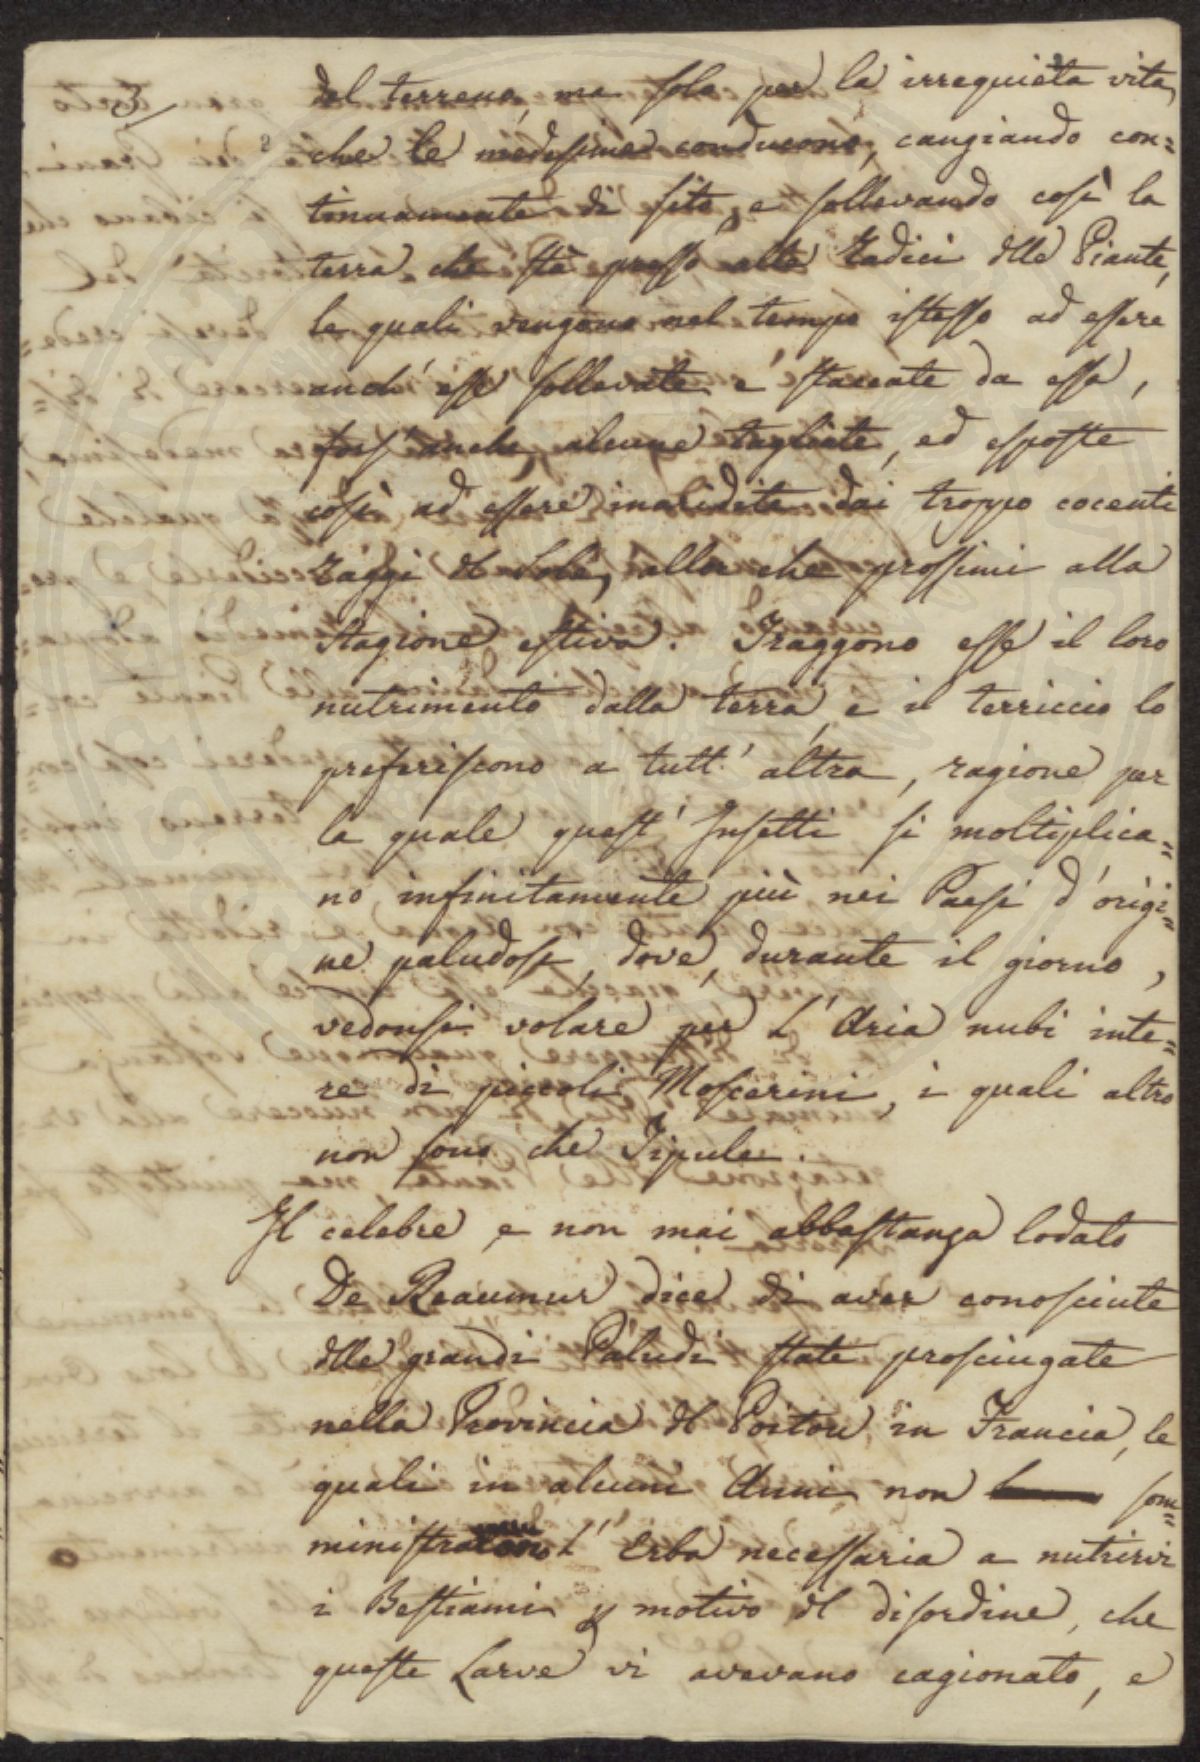 3/
del terreno, ma solo per la irrequieta vita,
2 che le medesime conducono, cangiando con=
tinuamente di sito, e sollevando così la
terra che stà presso alle Radici dlle Piante,
le quali vengono nel tempo istesso ad essere
anch' esse sollevate, e staccate da essa,
fors' anche, alcune tagliate, ed esposte
così ad essere inaridite dai troppo cocenti
Raggi dl Sole, allor che prossimi alla
Stagione estiva. Traggono esse il loro
nutrimento dalla terra, e il terriccio lo
preferiscono a tutt' altra, ragione per
la quale quest' Insetti si moltiplica=
no infinitamente più nei Paesi d' origi=
ne paludosi, dove, durante il giorno,
vedonsi volare per l' Aria nubi inte=
re di piccoli Moscerini, i quali altro
non sono che Tipule.
Il celebre, e non mai abbastanza lodato
De Reaumur dice di aver conosciute
dlle grandi Paludi state prosciugate
nella Provincia dl Poitou in Francia, le
quali in alcuni Anni non som=
ministrarono l' Erba necessaria a nutrirvi
i Bestiami p motivo dl disordine, che
queste Larve vi avevano cagionato, e